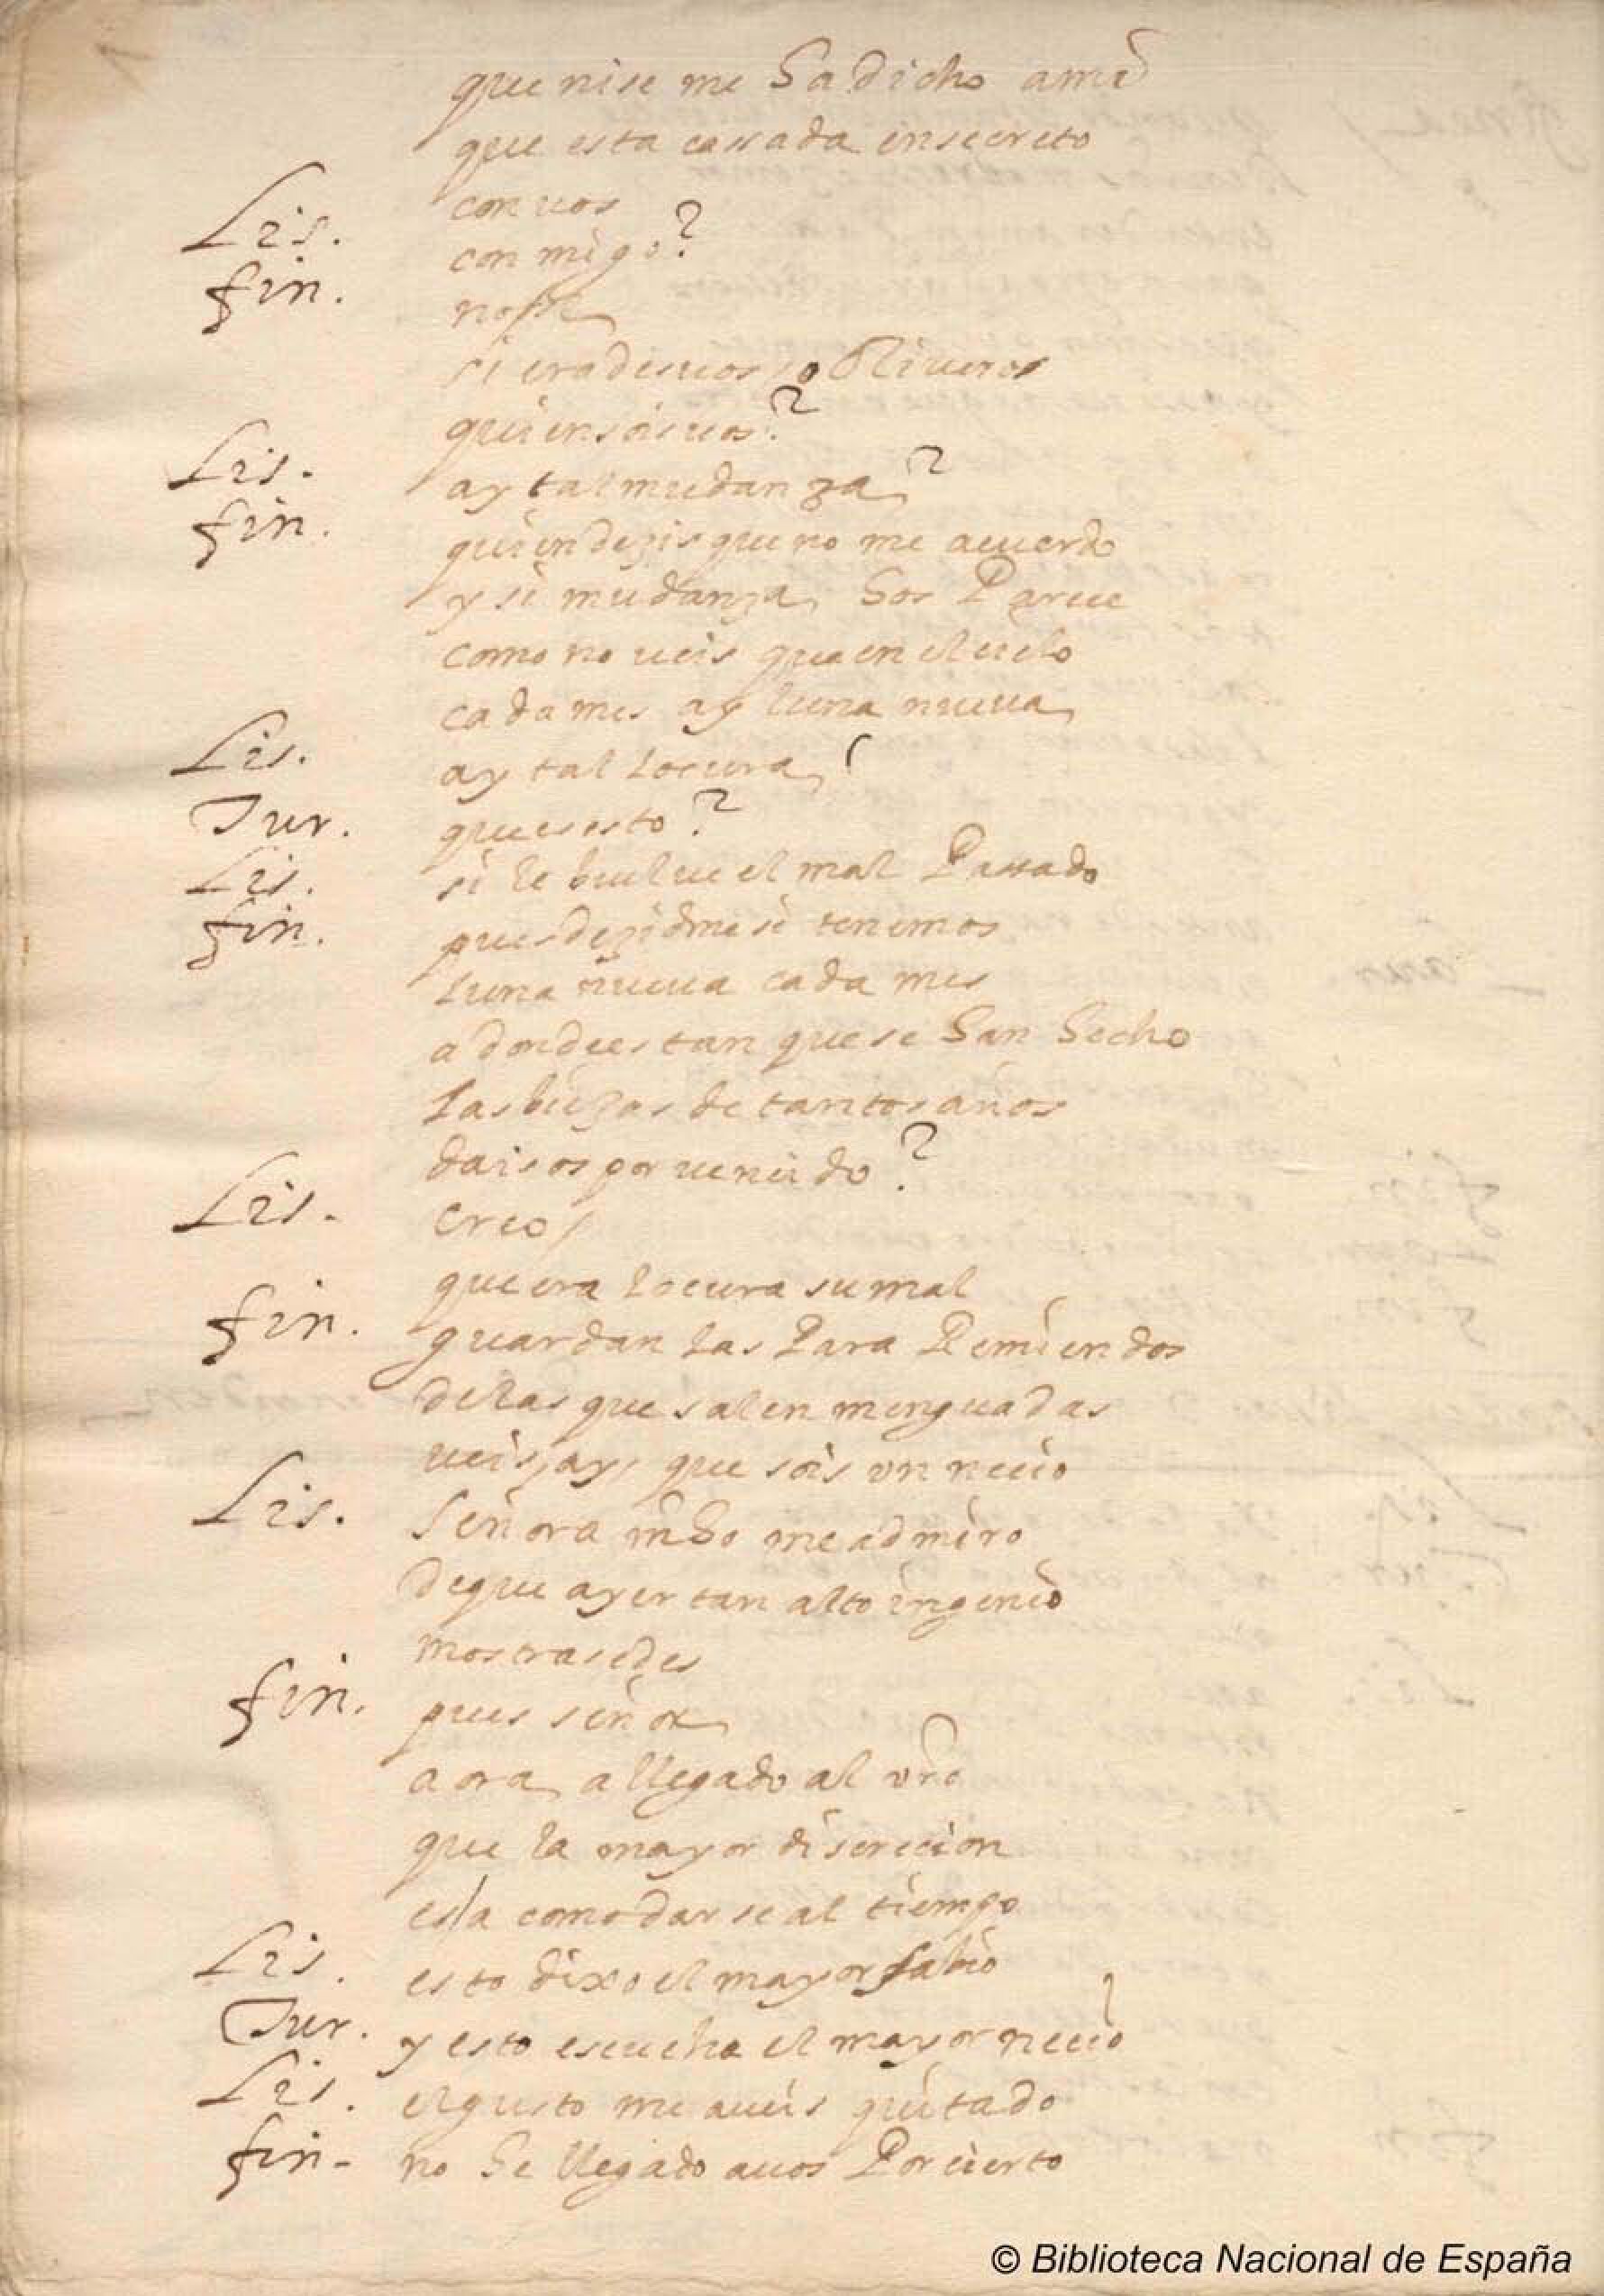 que nise me ha dicho ami
que esta cassada en secreto
con uos
Lis. con migo?
fin. no se
si era de uos o Oliueros
quien sois uos?
Lis. ay tal mudanza?
fin. quien dezis que no me acuerdo
y si mudanza hos Parece
como no ueis que en el cielo
cada mes ay luna nueua
Lis. ay tal locura!
Tur. que es esto?
Lis. si le buelue el mal Passado
fin. pues dezidme si tenemos
luna nueua cada mes
adonde estan que se han hecho
las biejas de tantos años
daisos por uencido?
Lis. creo
que era locura su mal
fin. guardan las Para Remiendos
de las que salen menguadas
ueis ay que sois un necio
Lis. Señora mho me admiro
de que ayer tan alto ingenio
mostrasedes
fin. pues señor
aora a llegado al vro
que la mayor discrecion
es acomodarse al tiempo
Lis. esto dixo el mayor sabio
Tur. y esto escucha el mayor necio
Lis. el gusto me aueis quitado
fin. no he llegado a uos Por cierto
© Biblioteca Nacional de España